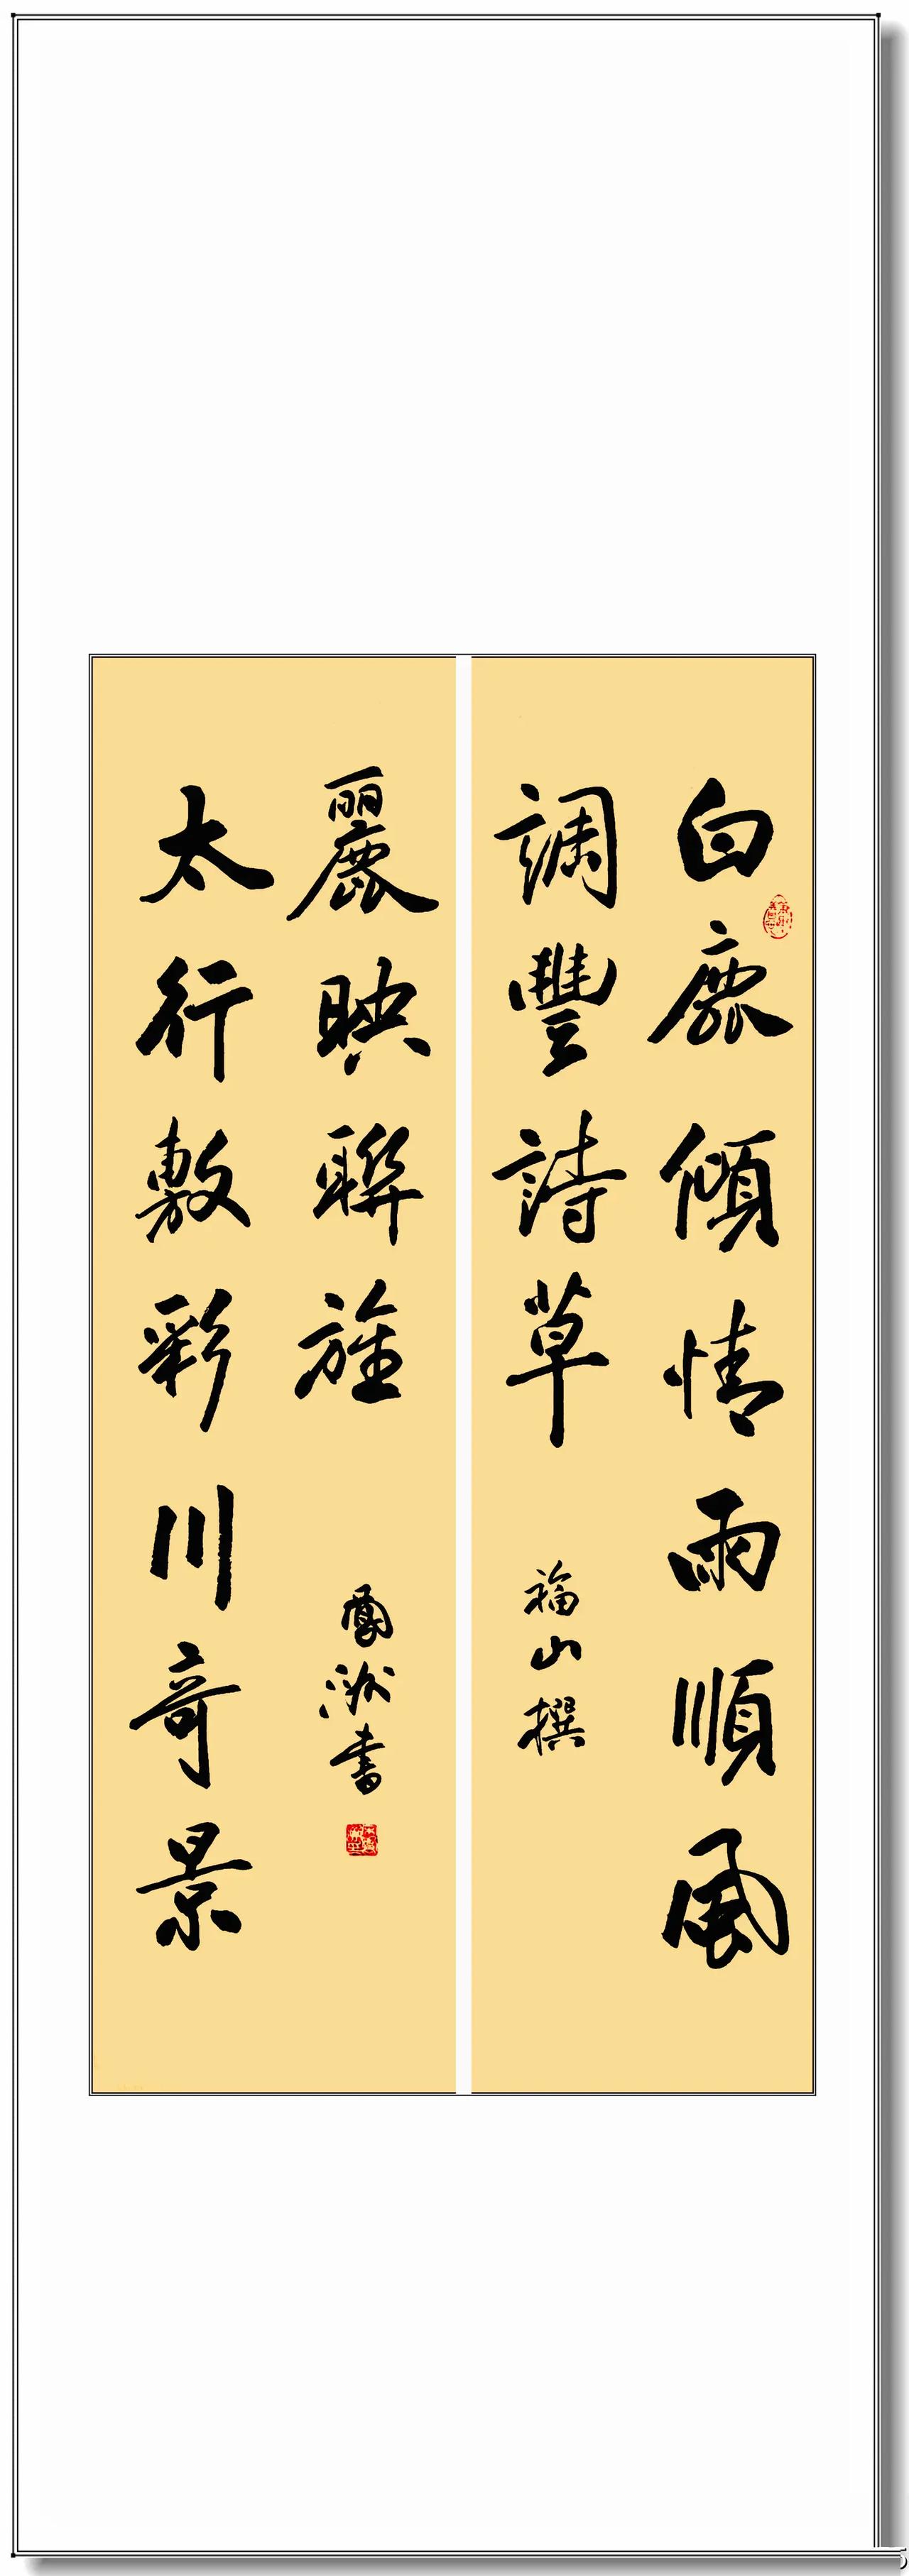 白鹿傾情雨順風
調豐詩草
福山撰
太行敷彩川奇景
麗映聯旌
鳳洲書